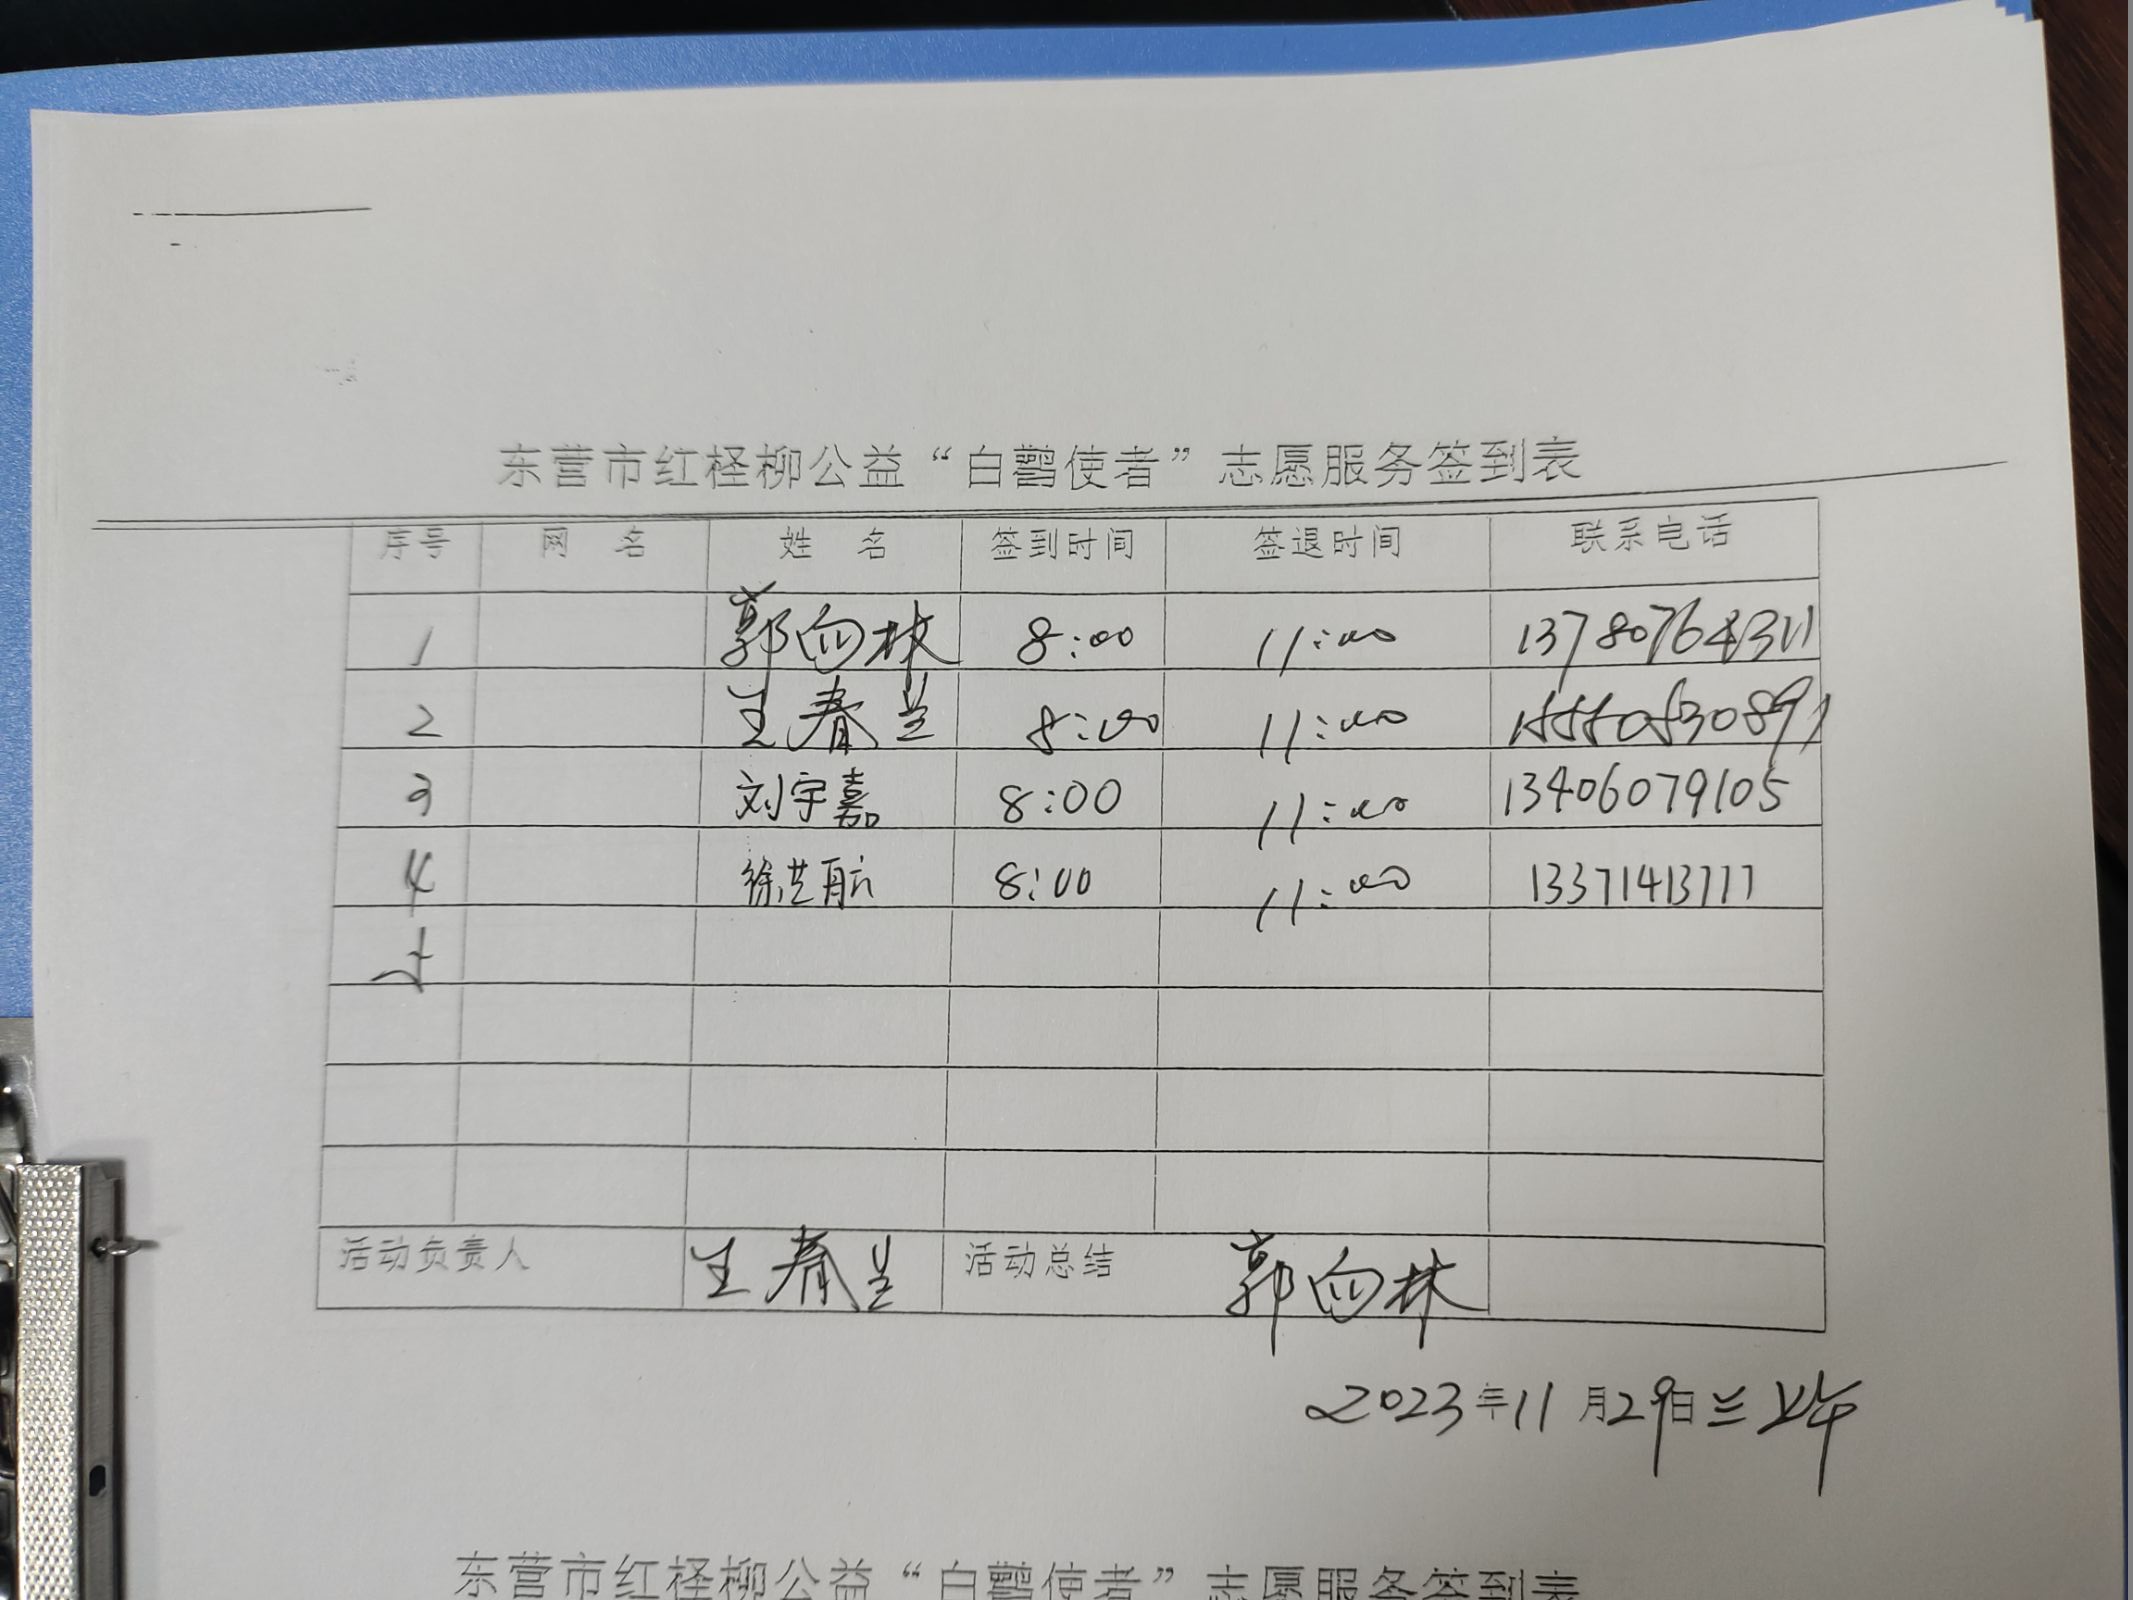 东营市红柽柳公益“白鹳使者”志愿服务签到表
序号 网 名 姓 名 签到时间 签退时间 联系电话
1 郭向林 8:00 11:00 13780764311
2 王春兰 8:00 11:00 15550530891
3 刘宇嘉 8:00 11:00 13406079105
4 徐洪航 8:00 11:00 13371413777
5
活动负责人 王春兰 活动总结 郭向林
2023年11月29日 三 上午
东营市红柽柳公益“白鹳使者”志愿服务签到表